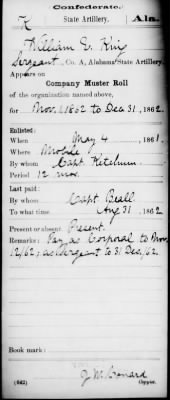 Confederate.
K State Artillery. Ala.
William E. King
Sergeant, Co. A, Alabama State Artillery.
Appears on
Company Muster Roll
of the organization named above,
for Nov. 1, 1862 to Dec 31, 1862.
Enlisted:
When May 4, 1861.
Where Mobile
By whom Capt. Ketchum.
Period 12 mos.
Last paid:
By whom Capt Beall
To what time Aug 31, 1862.
Present or absent Present.
Remarks: Pay as Corporal to Nov.
12/62; as Sergeant to 31 Dec/62.
Book mark:
J. M. Leonard
(642) Copyist.